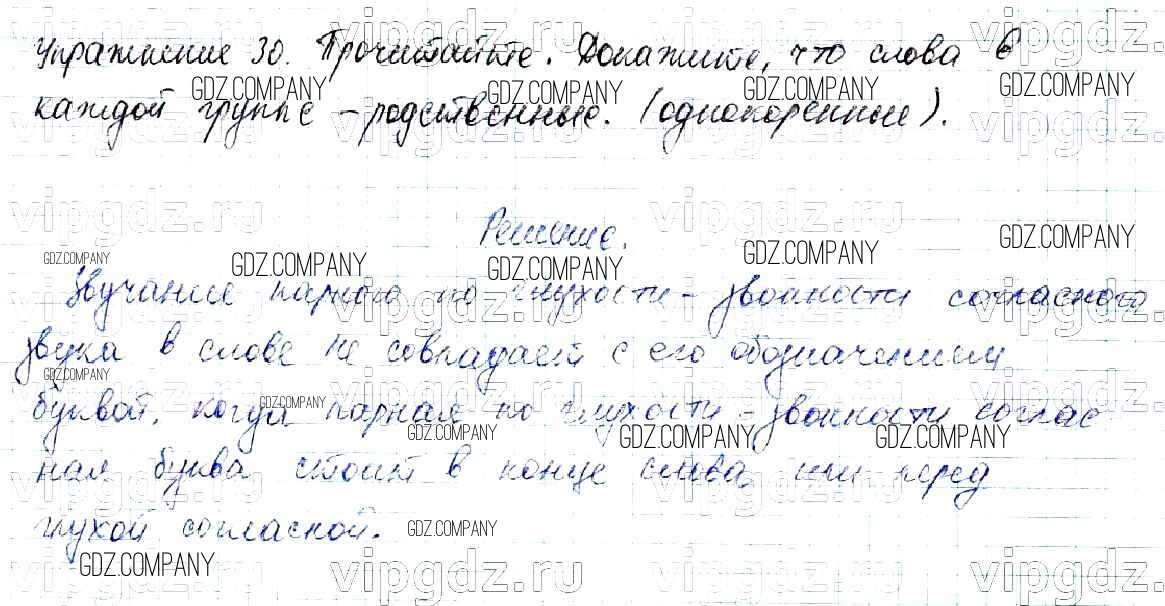 Упражнение 30. Прочитайте. Докажите, что слова в
каждой группе – родственные. (однокоренные).
Решение.
Звучание парного по глухости – звонкости согласного
звука в слове не совпадает с его обозначением
буквой, когда парная по глухости – звонкости соглас
ная буква стоит в конце слова или перед
глухой согласной.
vipgdz.ru
GDZ.COMPANY